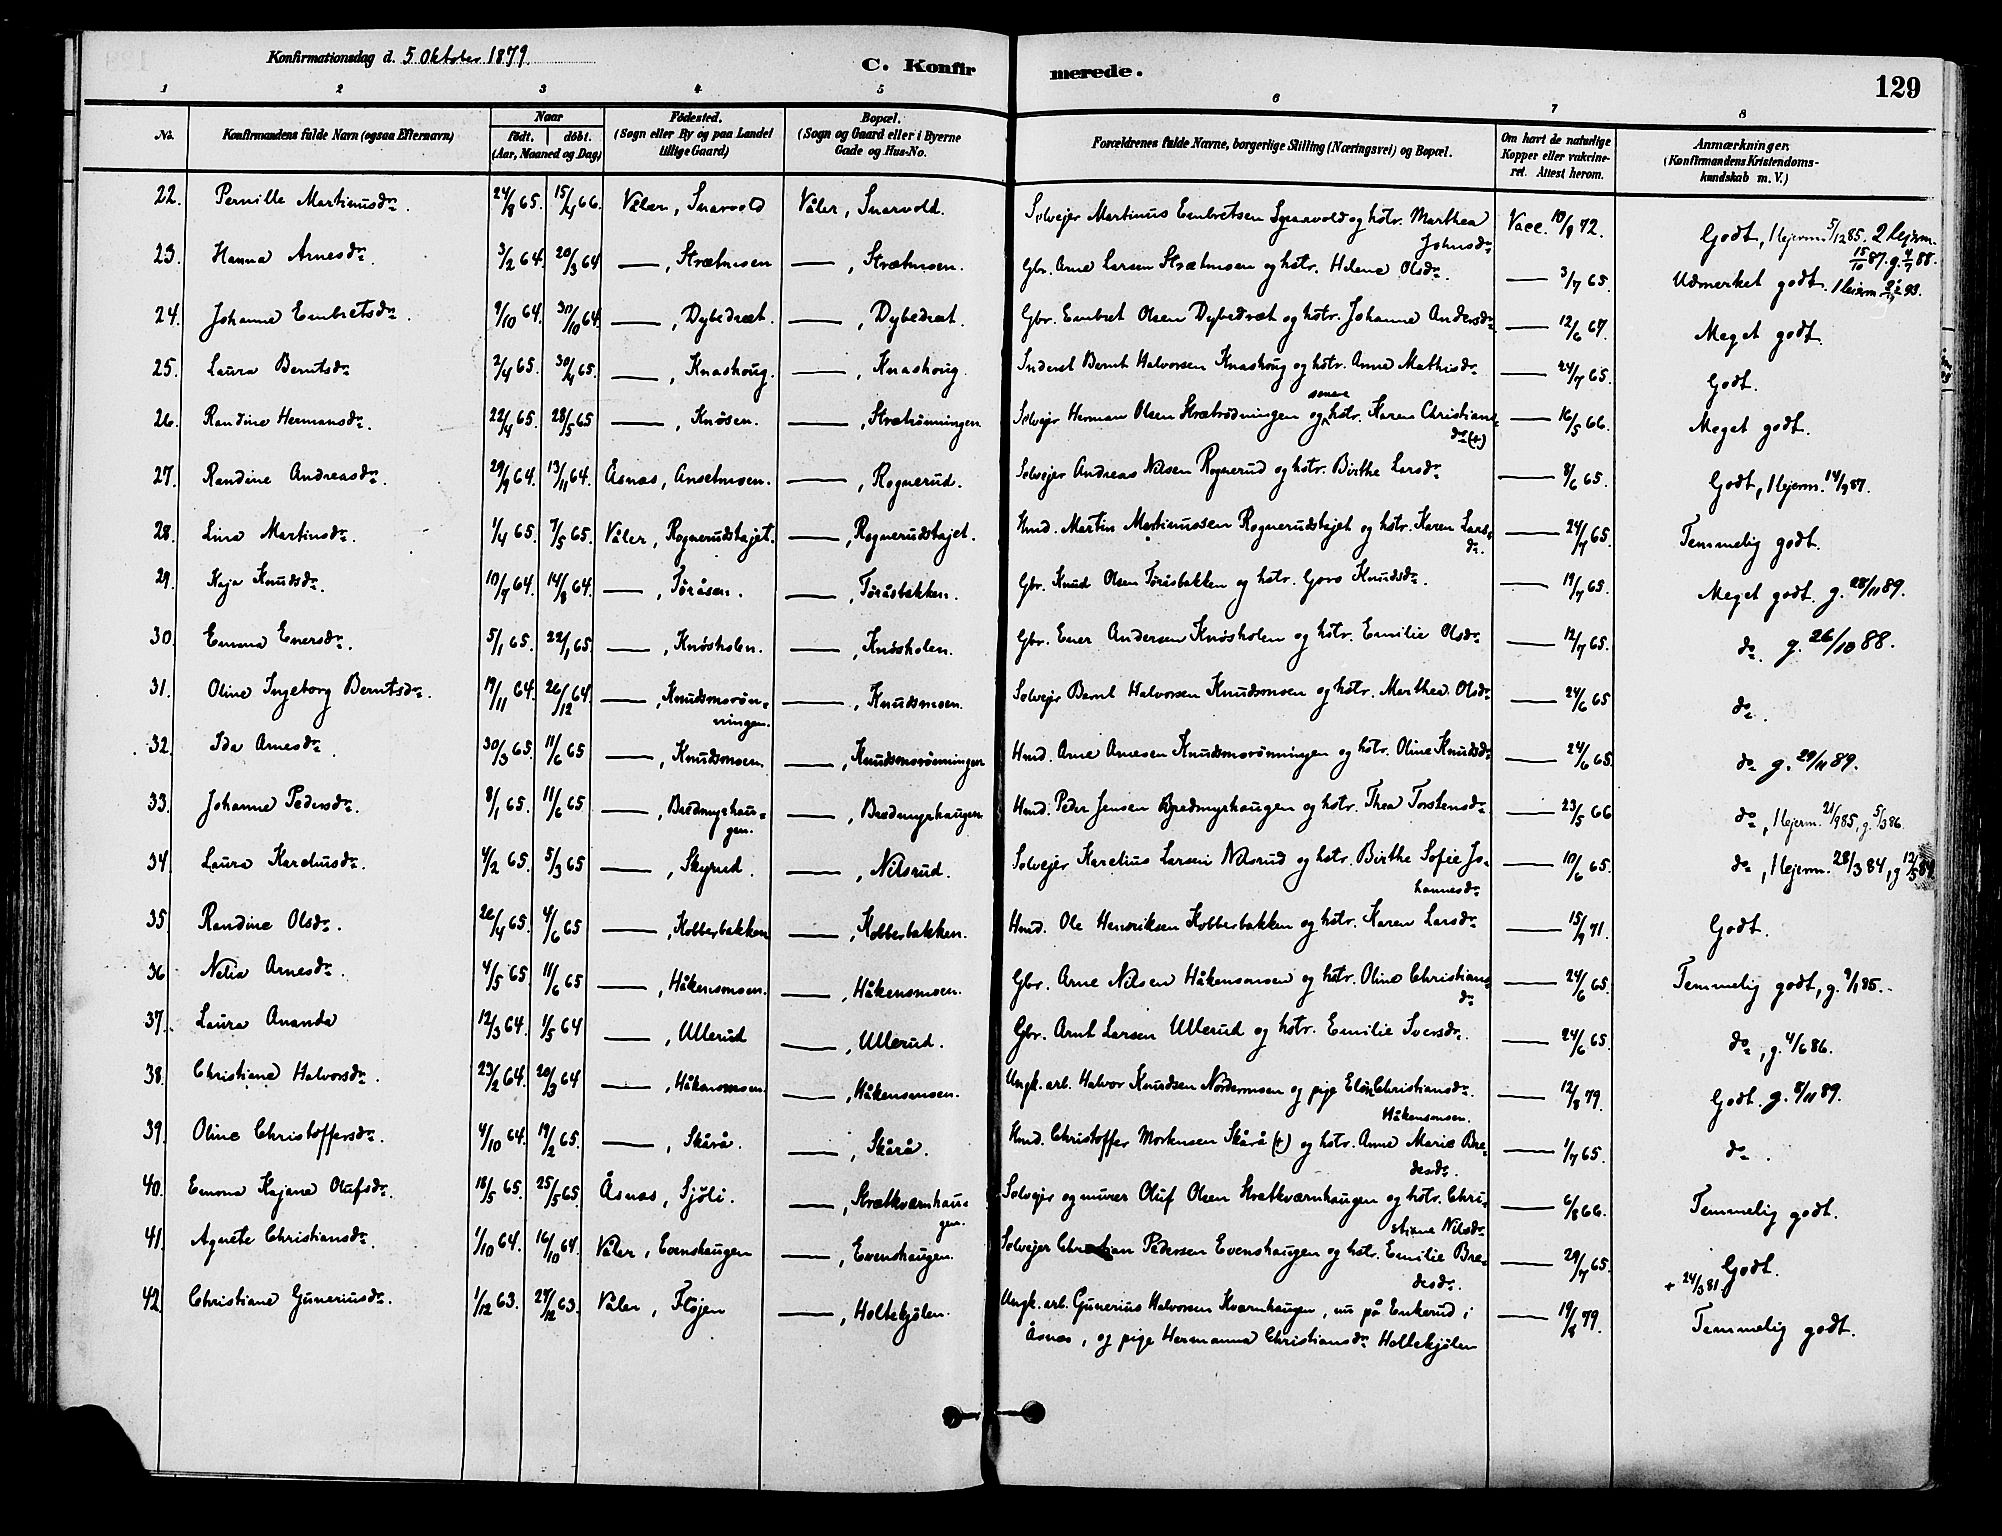 Konfirmationsdag d. 5 Oktober 1879.
C. Konfirmerede.
129
1 2 3 4 5 6 7 8
No. Konfirmandens fulde Navn (ogsaa Efternavn) Naar født. døbt. (Aar, Maaned og Dag) Fødested. (Sogn eller By og paa Landet tillige Gaard) Bopæl. (Sogn og Gaard eller i Byerne Gade og Hus-No. Forældrenes fulde Navne, borgerlige Stilling (Næringsvei) og Bopæl. Om havt de naturlige Kopper eller vakcineret. Attest herom. Anmærkninger. (Konfirmandens Kristendomskundskab m. V.)
22. Pernille Martinusdr. 24/8 65. 15/4 66. Våler, Snarvold Våler, Snarvold. Selvejer Martinus Embretsen Snarvold og hstr. Marthea Johnsdr Vacc. 10/9 72. Godt, 1 lejerm. 5/12 85. 2 lejerm. 15/10 87. g. 4/7 88.
23. Hanna Arnesdr. 3/2 64. 20/3 64 —, Strætmoen —, Strætmoen. Gbr. Arne Larsen Strætmoen og hstr. Helene Olsdr. — 3/7 65. Udmerket godt. 1 lejerm 93.
24. Johanne Embretsdr. 9/10 64. 30/10 64. —, Dybedræt. —, Dybedræt. Gbr. Embret Olsen Dybedræt og hstr. Johanne Andersdr — 12/6 67. Meget godt.
25. Laura Berntsdr 2/4 65. 30/4 65. —, Knashoug. —, Knashoug. Inderst Bernt Halvorsen Knashoug og hstr. Anne Mathisdr. — 24/7 65. Godt.
26. Randine Hermansdr. 22/4 65. 28/5 65 —, Knøsen. —, Strætrønningen Selvejr Herman Olsen Strætrødningen og hstr. Karen Christiansdr (+) — 16/5 66. Meget godt.
27. Randine Andreasdr. 29/9 64. 13/11 64. Åsnæs, Anselmoen. —, Rognerud. Selvejer Andreas Nilsen Rognerud og hstr. Birthe Larsdr — 8/6 65. Godt, 1 lejerm. 14/9 87.
28. Lina Martinsdr. 1/4 65. 7/5 65. Våler, Rognerudstajet. —, Rognerudstajet. Hmd. Martin Martinussen Rognerudstajet og hstr. Karen Larsdr. — 24/7 65. Temmelig godt.
29. Kaja Knudsdr. 10/7 64. 14/8 64. —, Toråsen. —, Toråsbakken. Gbr. Knud Olsen Toråsbakken og hstr. Goro Knudsdr. — 19/7 65. Meget godt. g. 28/11 89.
30. Emma Enersdr. 5/1 65. 22/1 65. —, Knøsholen. —, Knøsholen. Gbr. Ener Andersen Knøsholen og hstr. Emilie Olsdr — 12/7 65. do. g. 26/10 88.
31. Oline Ingeborg Berntsdr. 19/11 64. 26/12 64. —, Knudsmorønningen. —, Knudsmoen. Selvejr Bernt Halvorsen Knudsmoen og hstr. Marthea Olsdr — 24/6 65 do.
32. Ida Arnesdr. 30/3 65. 11/6 65 —, Knudsmoen. —, Knudsmorønningen Hmd. Arne Arnesen Knudsmorønningen og hstr. Oline Knudsdr — 24/6 65. do g. 29/11 89.
33. Johanne Pedersdr. 8/1 65. 11/6 65 —, Brødmyrhaugen. —, Brødmyrhaugen Hmd. Peder Jensen Brødmyrhaugen og hstr. Thea Torstensdr — 23/5 66 do, 1 lejerm. 21/9 85, g. 5/3 86.
34. Laura Kareliusdr. 4/2 65. 5/3 65 —, Skyrud. —, Nilsrud. Selvejr Karelius Larsen Nilsrud og hstr. Birthe Sofie Johannesdr — 10/6 65. do, 1 lejerm. 28/3 84, g 12/5 84
35 Randine Olsdr. 26/4 65. 4/6 65 —, Kobberbakken —, Kobberbakken. Hmd. Ole Henriksen Kobberbakken og hstr. Karen Larsdr — 15/9 71. Godt.
36 Nelia Arnesdr. 4/5 65 11/6 65 —, Håkensmoen. —, Håkensmoen. Gbr. Arne Nilsen Håkensmoen og hstr. Oline Christiansdr — 24/6 65. Temmelig godt, g. 9/1 85.
37. Laura Ananda 12/3 64. 1/5 64 —, Ullerud —, Ullerud. Gbr. Arnt Larsen Ullerud og hstr. Emilie Iversdr. — 24/6 65 do, g. 4/6 86.
38. Christiane Halvorsdr. 23/2 64. 20/3 64 —, Håkensmoen —, Håkensmoen. Ungk. arb. Halvor Knudsen Nordermoen og pige Elen Christiansdr. Håkensmoen. — 12/8 79. Godt. g. 8/11 89.
39. Oline Christoffersdr. 4/10 64. 19/2 65. —, Skårå. —, Skårå. Hmd. Christoffer Mortensen Skårå (+) og hstr. Anne Marie Bredesdr. — 1/7 65. do.
40. Emma Kajane Olufsdr. 18/5 65. 25/5 65. Åsnæs, Sjøli. —, Strætkværnhaugen. Selvejr og murer Oluf Olsen Strætkværnhaugen og hstr. Christiane Nilsdr — 6/8 66. Temmelig godt.
41. Agnete Christiansdr. 1/10 64. 16/10 64. Våler, Evenshaugen —, Evenshaugen. Selvejer Christian Pedersen Evenshaugen og hstr. Emilie Bredesdr. — 29/7 65. Godt. + 24/3 81
42. Christiane Guneriusdr. 1/12 63. 27/12 63. Våler, Fløjen —, Holtekjølen. Ungk. arb. Gunerius Halvorsen Kværnhaugen, nu på Enkerud i Åsnæs, og pige Hermanna Christiansdr Holtekjølen — 19/8 79. Temmelig godt.